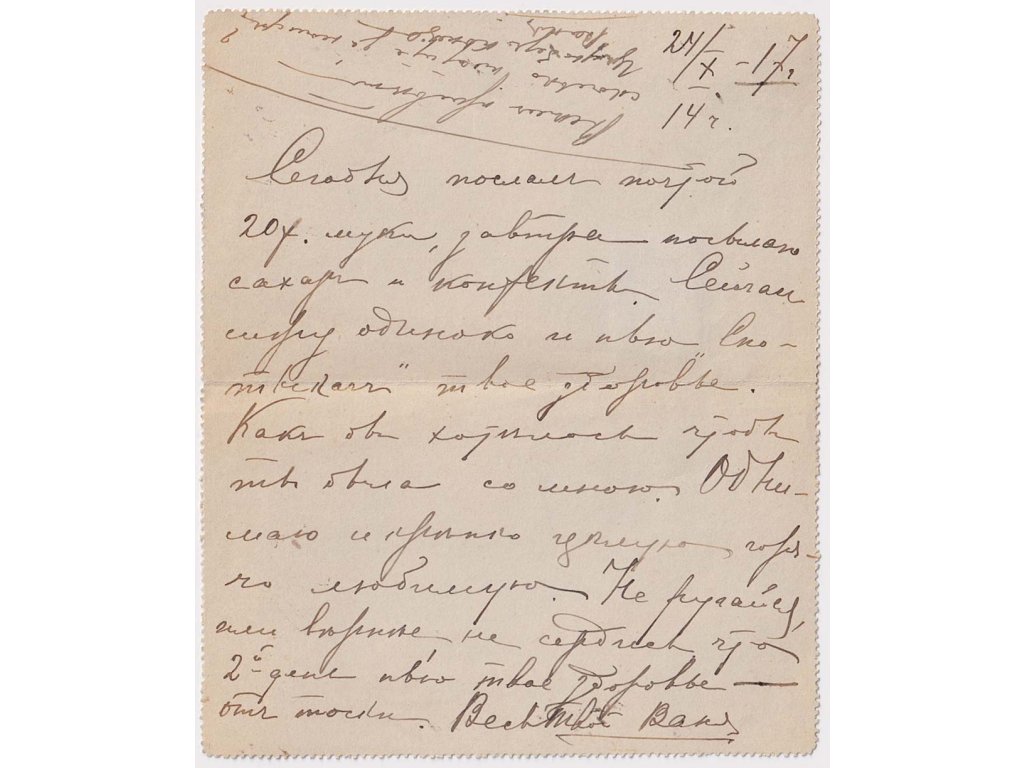 24/X – 17 г.
14 г.
Всем привет!
Сегодня послалъ почтой
20 ф. муки, завтра посылаю
сахаръ и конфекты. Сейчас
сижу одиноко и пью „Спо-
тыкачъ“ твое здоровье.
Какъ бы хотѣлось чтобъ
ты была со мною. Обни-
маю и крѣпко цѣлую горя-
чо любимую. Не ругайся,
или вѣрнѣе, не сердись что
2й день пью твое здоровье —
отъ тоски. Весь твой Ваня